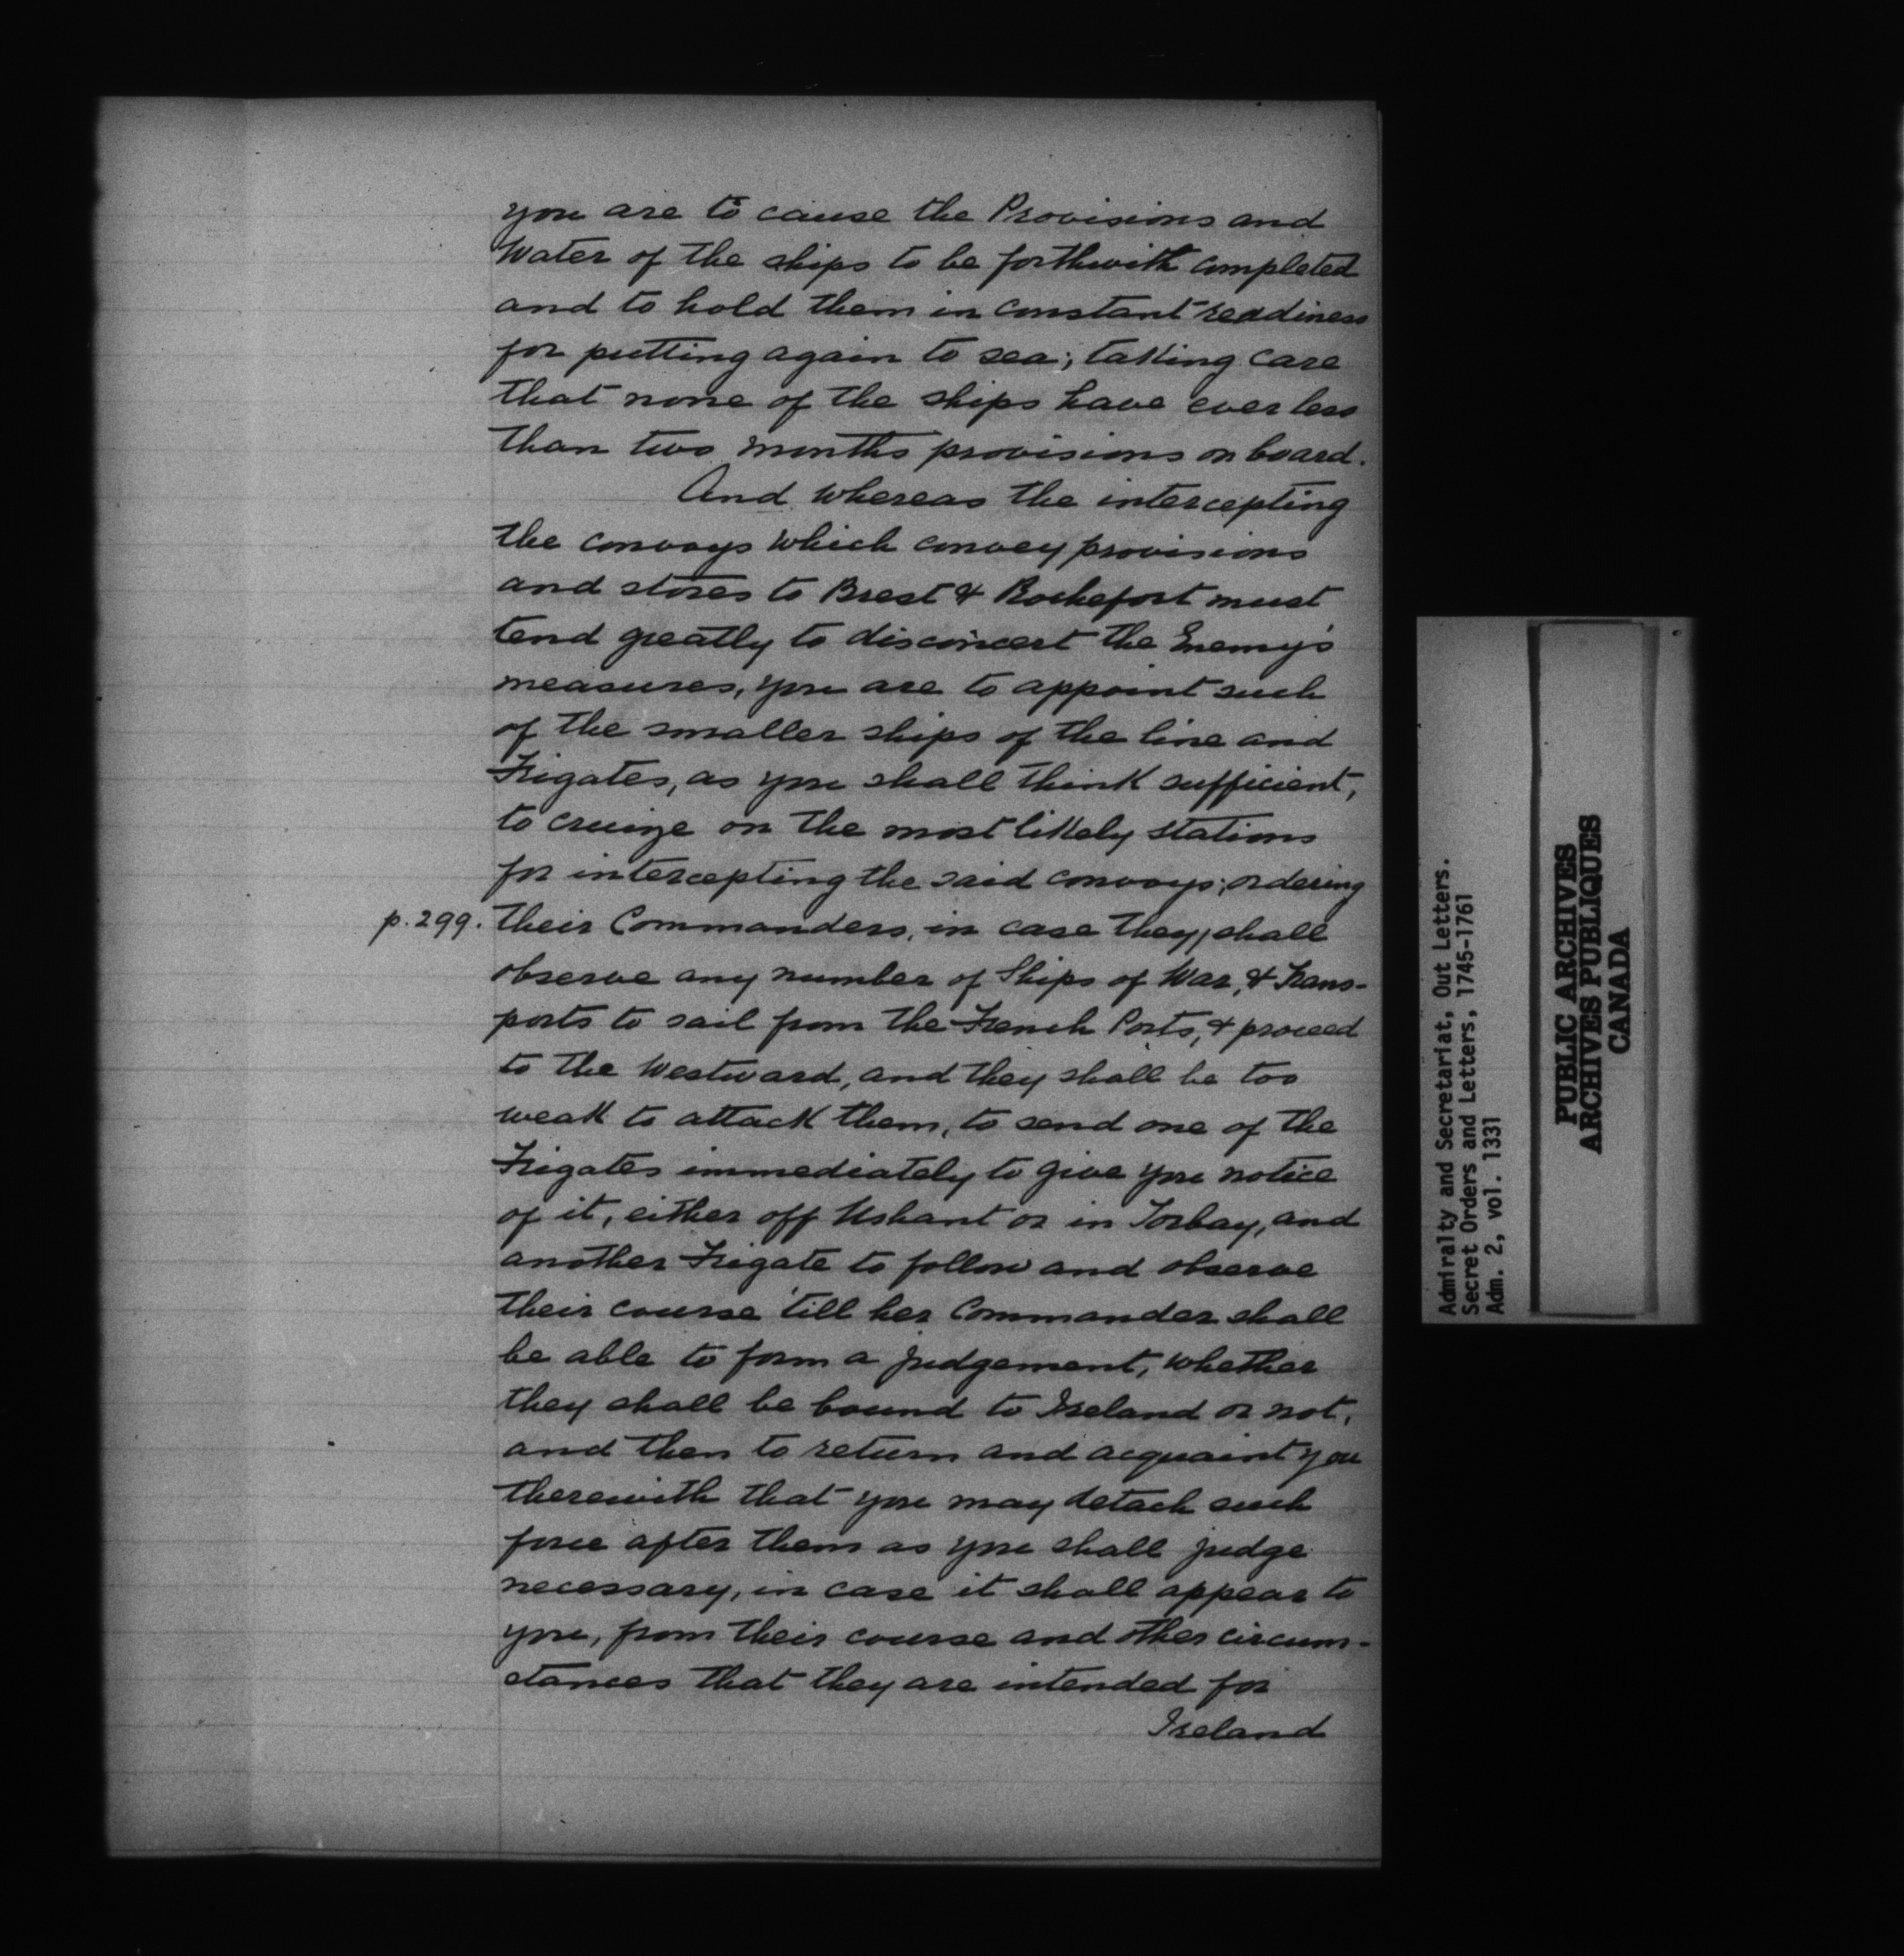 you are to cause the Provisions and
Water of the ships to be forthwith completed
and to hold them in constant readiness
for putting again to sea; taking care
that none of the ships have ever less
than two months provisions on board.
And whereas the intercepting
the convoys which convey provisions
and stores to Brest & Rochefort must
tend greatly to disconcert the Enemy's
measures, you are to appoint such
of the smaller ships of the line and
Frigates, as you shall think sufficient,
to cruize on the most likely stations
for intercepting the said convoys; ordering
p. 299. their Commanders, in case they shall
observe any number of Ships of War, & Trans-
ports to sail from the French Ports, & proceed
to the Westward, and they shall be too
weak to attack them, to send one of the
Frigates immediately to give you notice
of it, either off Ushant or in Torbay, and
another Frigate to follow and observe
their course 'till her Commander shall
be able to form a judgement, whether
they shall be bound to Ireland or not,
and then to return and acquaint you
therewith that you may detach such
force after them as you shall judge
necessary, in case it shall appear to
you, from their course and other circum-
stances that they are intended for
Ireland
Admiralty and Secretariat, Out Letters.
Secret Orders and Letters, 1745-1761
Adm. 2, vol. 1331
PUBLIC ARCHIVES
ARCHIVES PUBLIQUES
CANADA